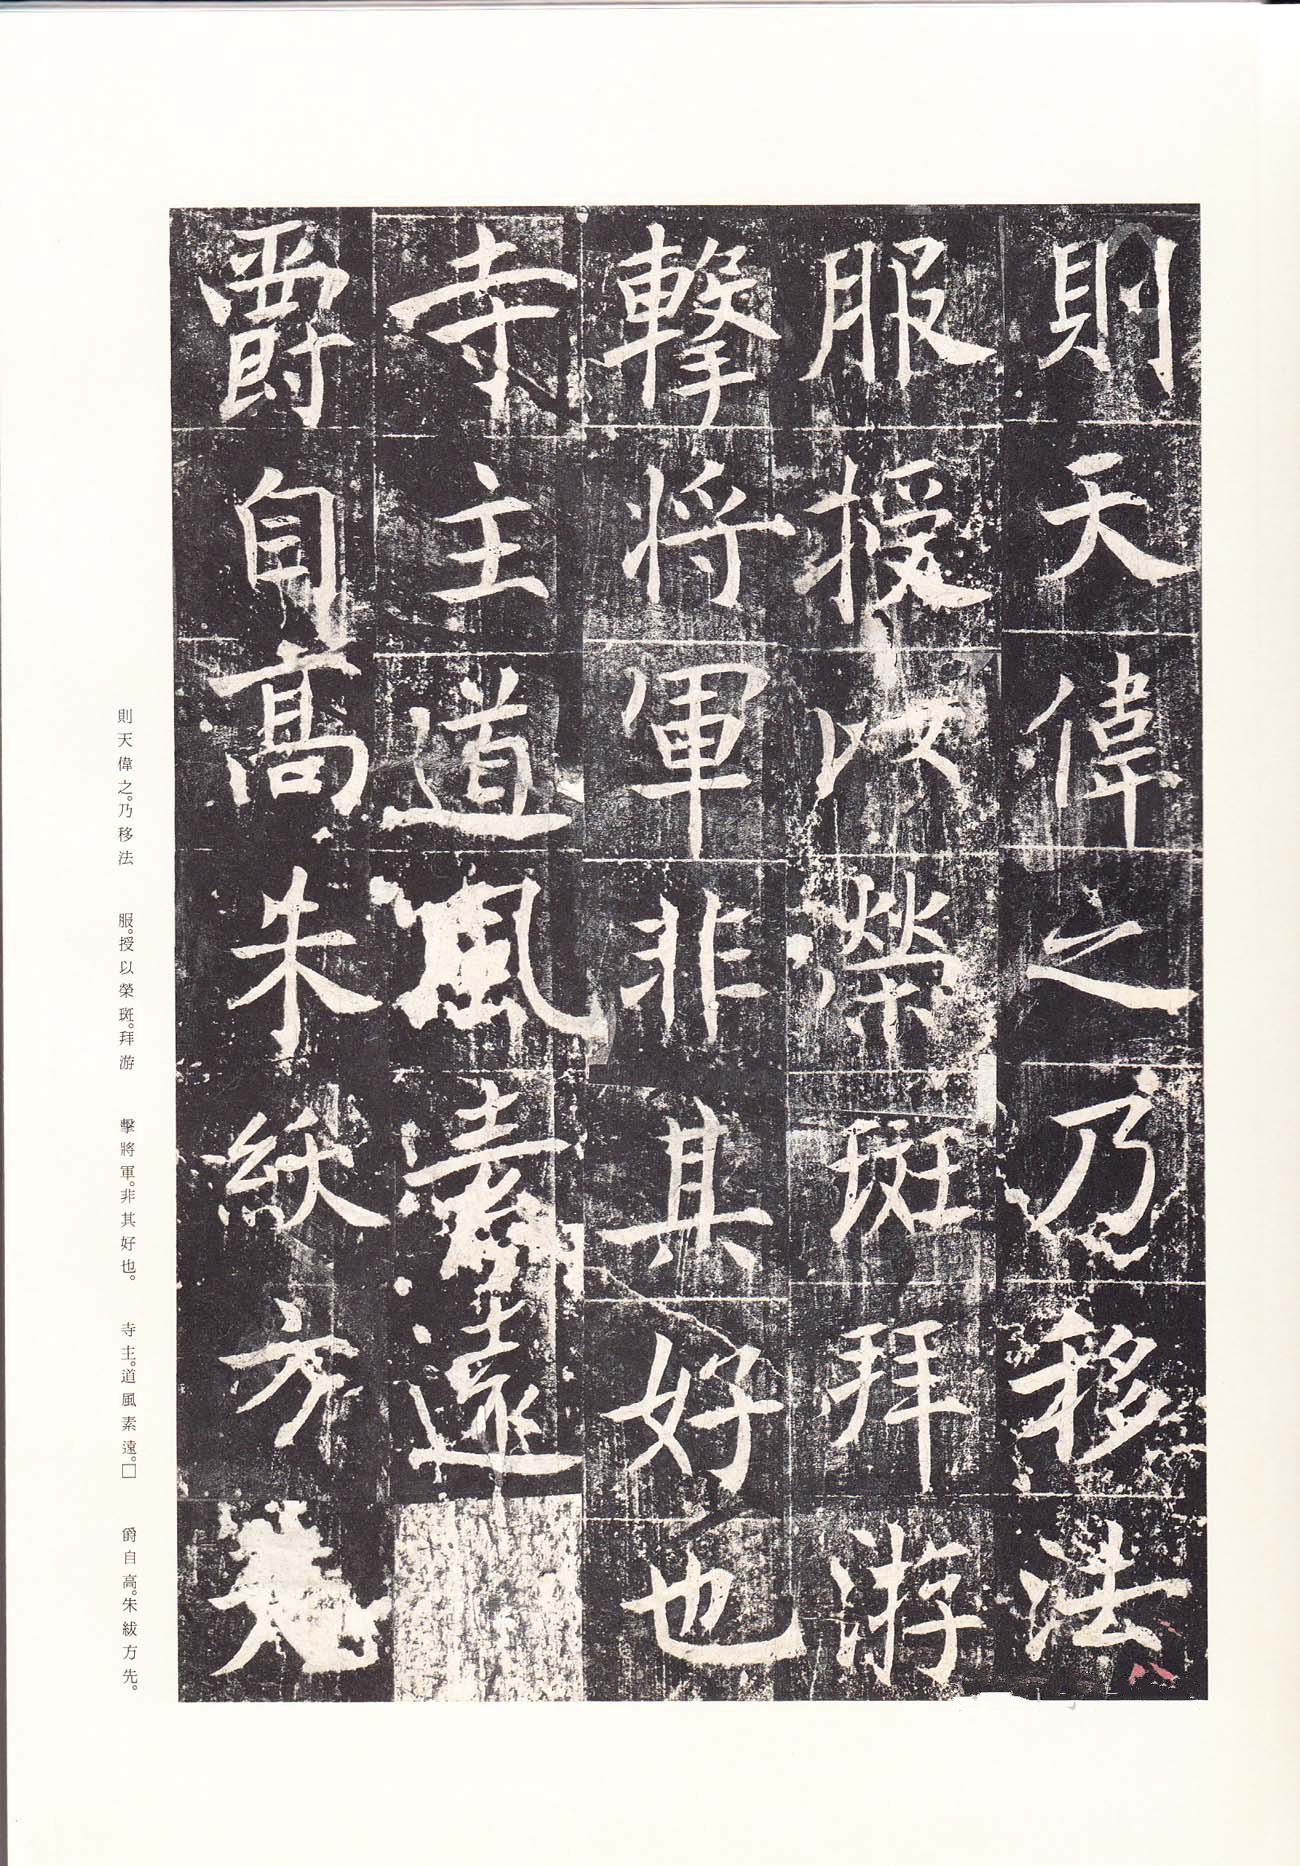 則天偉之乃移法
服授以榮斑拜游
擊將軍非其好也
寺主道風素遠
爵自高朱紱方先
則天偉之。乃移法　服。授以榮斑。拜游　擊將軍。非其好也。　寺主。道風素遠。□　爵自高。朱紱方先。